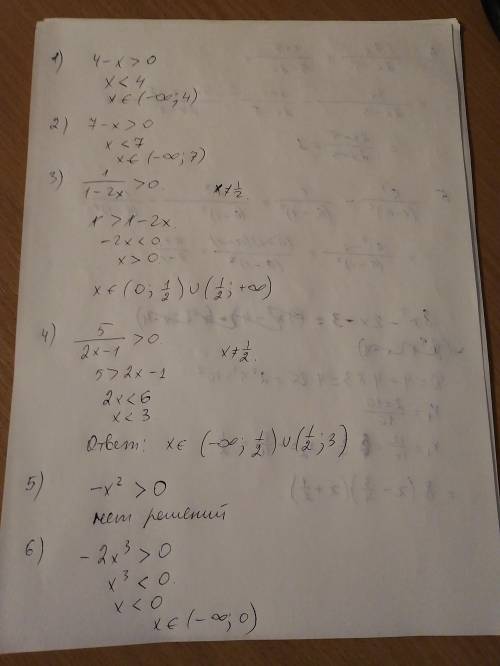 1) 4-x>0
x<4
x∈(-∞; 4)
2) 7-x>0
x<7
x∈(-∞; 7)
3) 1/(1-2x) >0. x≠1/2
1>1-2x.
-2x<0
x>0.
x∈(0; 1/2)∪(1/2; +∞)
4) 5/(2x-1) >0 x≠1/2.
5>2x-1
2x<6
x<3
Ответ: x∈ (-∞; 1/2)∪(1/2; 3)
5) -x²>0
нет решений
6) -2x³>0
x³<0.
x<0
x∈(-∞; 0)